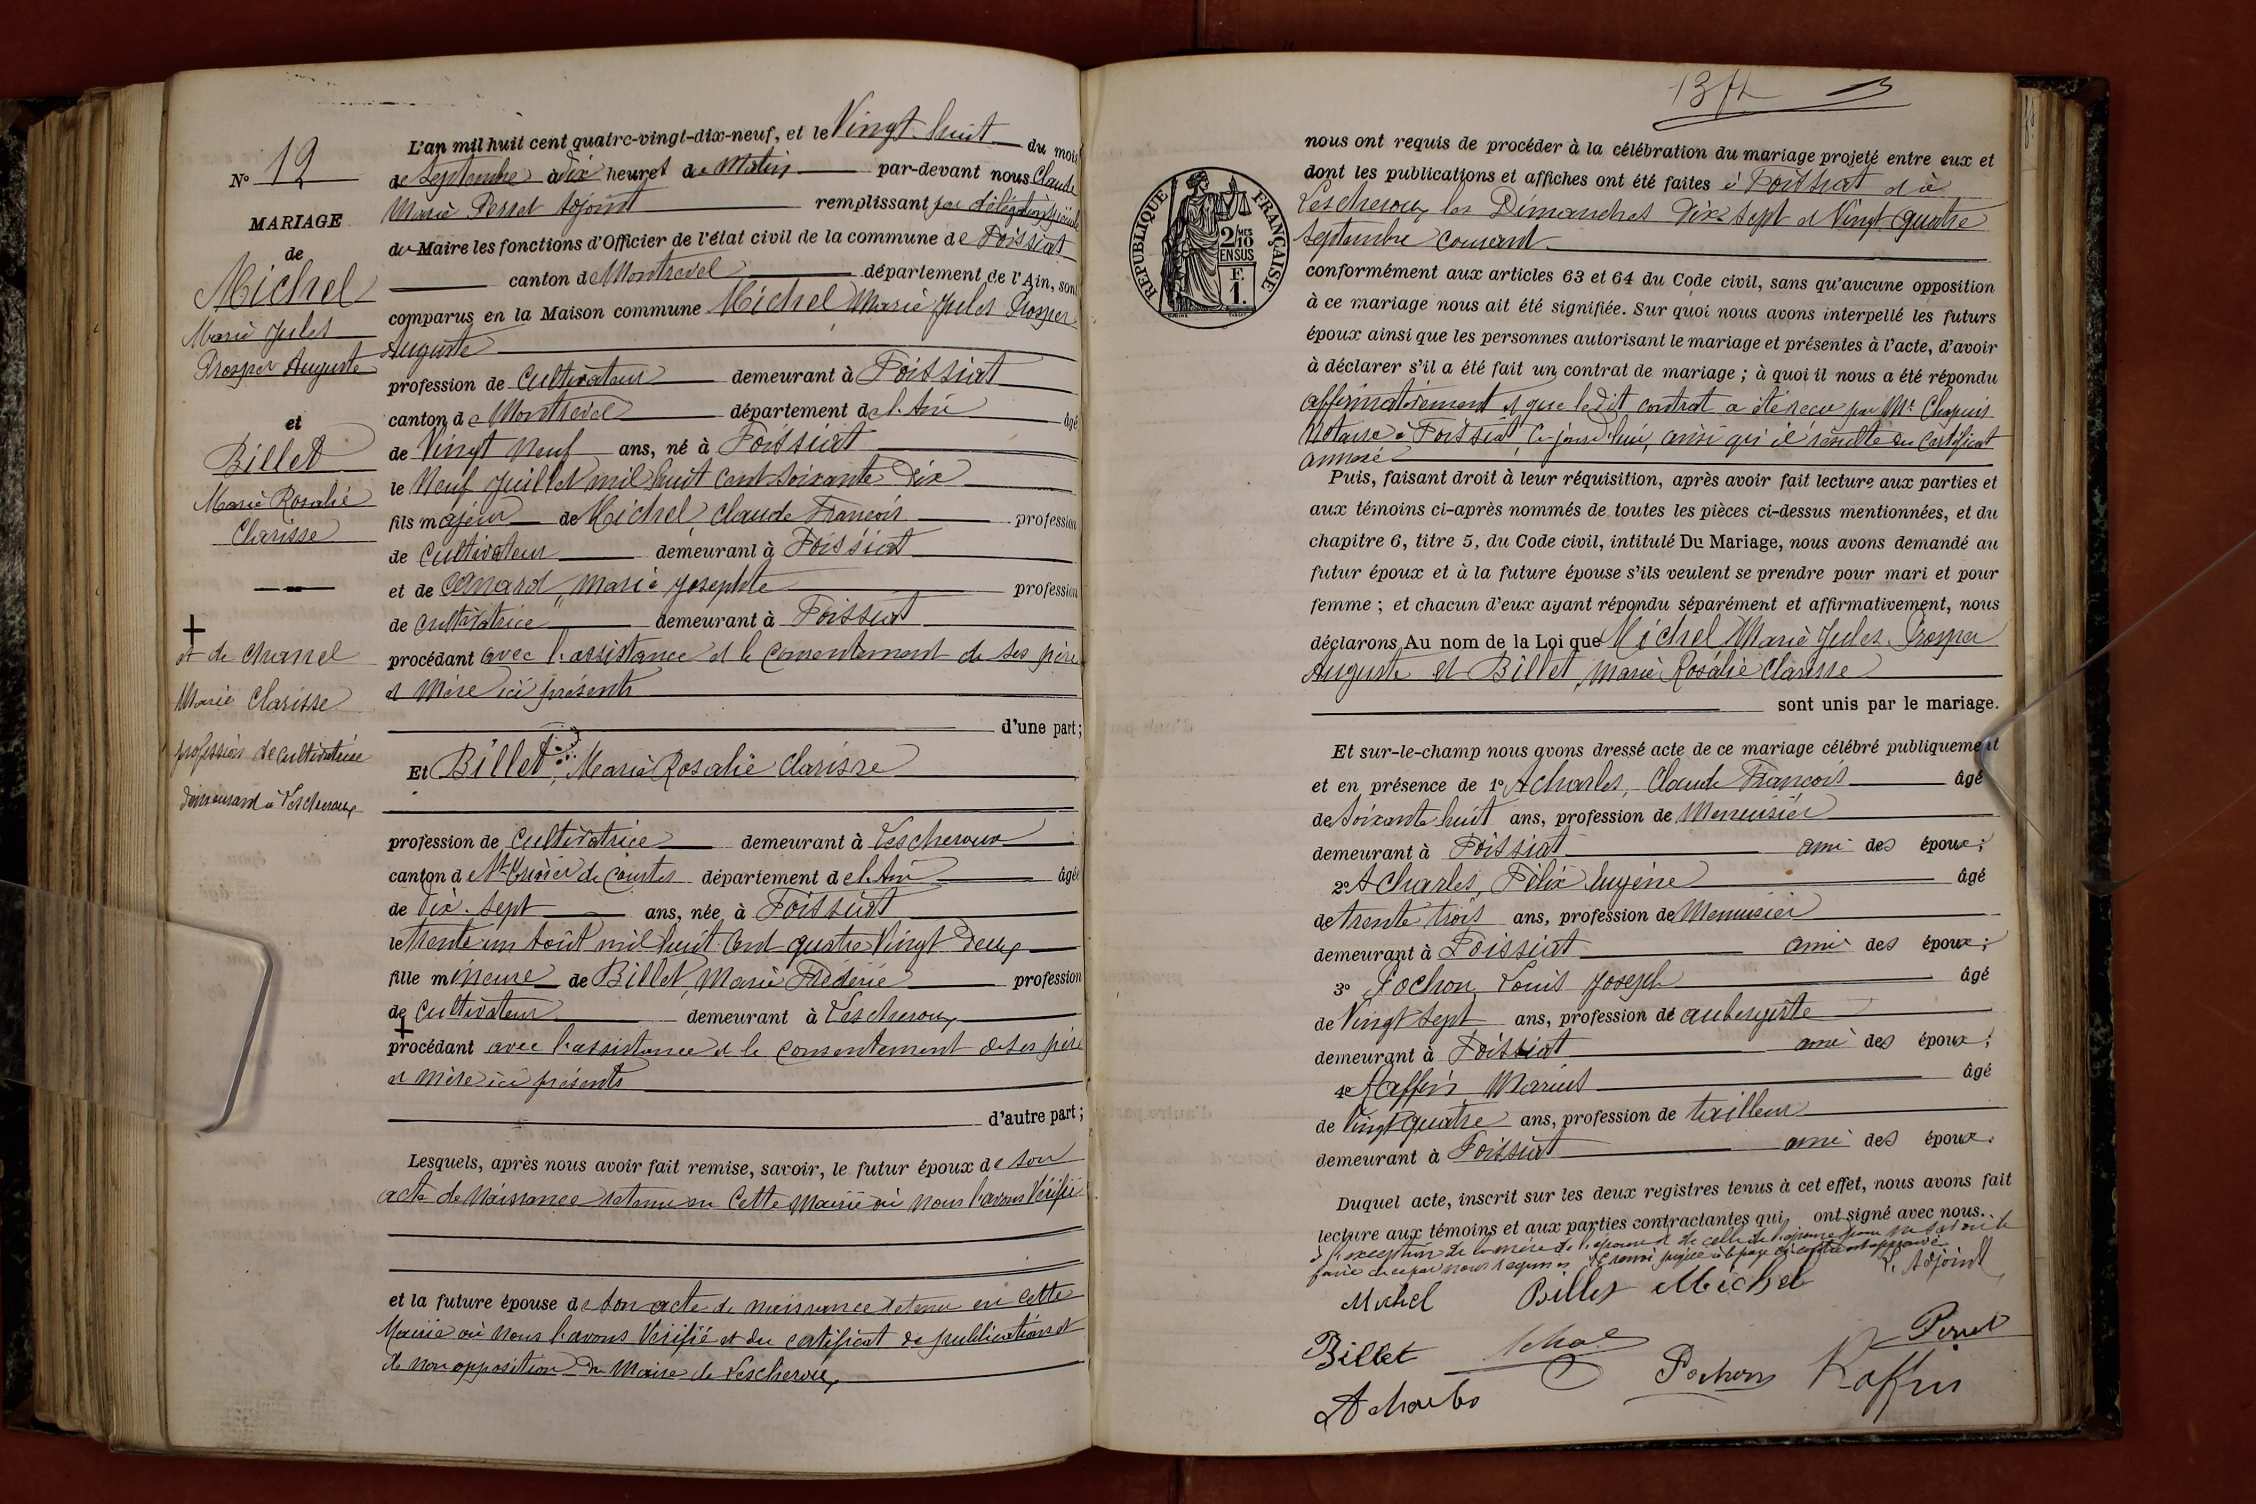 N° 12
MARIAGE
de
Michel
Marie Jules
Prosper Auguste
et
Billet
Marie Rosalie
Clarisse
+
et de Charnel
Marie Clarisse
profession de cultivatrice
demeurant à Lescheroux
L'an mil huit cent quatre-vingt-dix-neuf, et le Vingt huit du mois
de Septembre à Dix heures du Matin par-devant nous Claude
Marie Perret Adjoint remplissant par délégation spéciale
du Maire les fonctions d'Officier de l'état civil de la commune de Foissiat
canton de Montrevel département de l'Ain, sont
comparus en la Maison commune Michel Marie Jules Prosper
Auguste
profession de Cultivateur demeurant à Foissiat
canton de Montrevel département de l'Ain âgé
de Vingt Neuf ans, né à Foissiat
le Neuf Juillet mil huit cent soixante Dix
fils majeur de Michel Claude François profession
de cultivateur demeurant à Foissiat
et de Marie Josephte profession
de cultivatrice demeurant à Foissiat
procédant avec l'assistance et le consentement de ses père
et Mère ici présents
d'une part;
Et Billet, Marie Rosalie Clarisse
profession de Cultivatrice demeurant à Lescheroux
canton de St Trivier de Courtes département de l'Ain âgée
de Dix-Sept ans, née à Foissiat
le trente un Août mil huit cent quatre Vingt Deux
fille mineure de Billet, Marie Frédéric profession
de Cultivateur demeurant à Lescheroux
+
procédant avec l'assistance et le consentement de ses père
et Mère ici présents
d'autre part;
Lesquels, après nous avoir fait remise, savoir, le futur époux de son
acte de Naissance retenu en Cette Mairie où Nous l'avons Vérifié
et la future épouse de son acte de naissance retenu en cette
Mairie où Nous l'avons Vérifié et du certificat de publications et
de non opposition du Maire de Lescheroux
RÉPUBLIQUE FRANÇAISE
2/10
MES
EN SUS
F.
1.
nous ont requis de procéder à la célébration du mariage projeté entre eux et
dont les publications et affiches ont été faites à Foissiat et à
Lescheroux les Dimanches Dix Sept et Vingt Quatre
Septembre Courant
conformément aux articles 63 et 64 du Code civil, sans qu'aucune opposition
à ce mariage nous ait été signifiée. Sur quoi nous avons interpellé les futurs
époux ainsi que les personnes autorisant le mariage et présentes à l'acte, d'avoir
à déclarer s'il a été fait un contrat de mariage ; à quoi il nous a été répondu
affirmativement et que ledit contrat a été reçu par Me Chapuis
Notaire à Foissiat, ce jourd'hui, ainsi qu'il résulte du certificat
annexé
Puis, faisant droit à leur réquisition, après avoir fait lecture aux parties et
aux témoins ci-après nommés de toutes les pièces ci-dessus mentionnées, et du
chapitre 6, titre 5, du Code civil, intitulé Du Mariage, nous avons demandé au
futur époux et à la future épouse s'ils veulent se prendre pour mari et pour
femme ; et chacun d'eux ayant répondu séparément et affirmativement, nous
déclarons Au nom de la Loi que Michel Marie Jules Prosper
Auguste et Billet, Marie Rosalie Clarisse
sont unis par le mariage.
Et sur-le-champ nous avons dressé acte de ce mariage célébré publiquement
et en présence de 1° Acharles, Claude François âgé
de Soixante huit ans, profession de Menuisier
demeurant à Foissiat ami des époux;
2° Acharles, Félix Eugène âgé
de trente trois ans, profession de Menuisier
demeurant à Foissiat ami des époux;
3° Pochon Louis Joseph âgé
de Vingt Sept ans, profession de aubergiste
demeurant à Foissiat ami des époux;
4° Raffin Marius âgé
de Vingt quatre ans, profession de tailleur
demeurant à Foissiat ami des époux.
Duquel acte, inscrit sur les deux registres tenus à cet effet, nous avons fait
lecture aux témoins et aux parties contractantes qui ont signé avec nous.
à l'exception de la mère de l'époux et de celle de l'épouse pour ne savoir le
faire de ce par nous requises
L'Adjoint
Michel Billet Michel
Perret
Billet
Pochon Raffin
Acharles